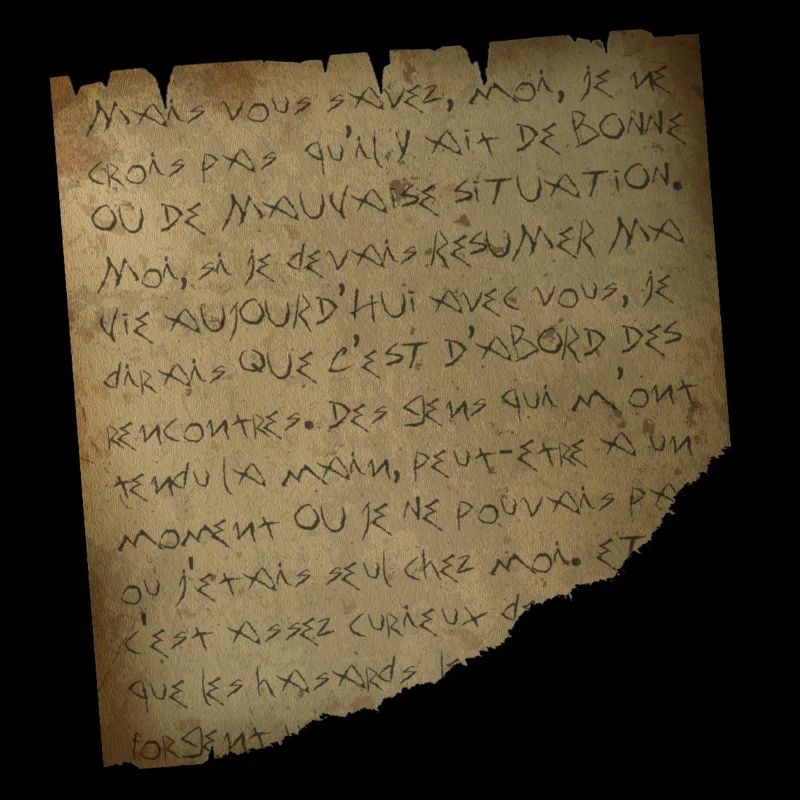 Mais vous savez, moi, je ne
crois pas qu'il y ait DE BONNE
OU DE MAUVAISE SITUATION.
Moi, si je devais RESUMER MA
Vie AUJOURD'HUI AVEC vous, je
dirais QUE C'EST D'ABORD DES
RENCONTRES. DES gens qui m'ont
tendu la main, peut-être à un
moment OU JE NE pouvais pa
où j'étais seul chez moi. ET
c'est assez curieux d
que les hasards le
forgent